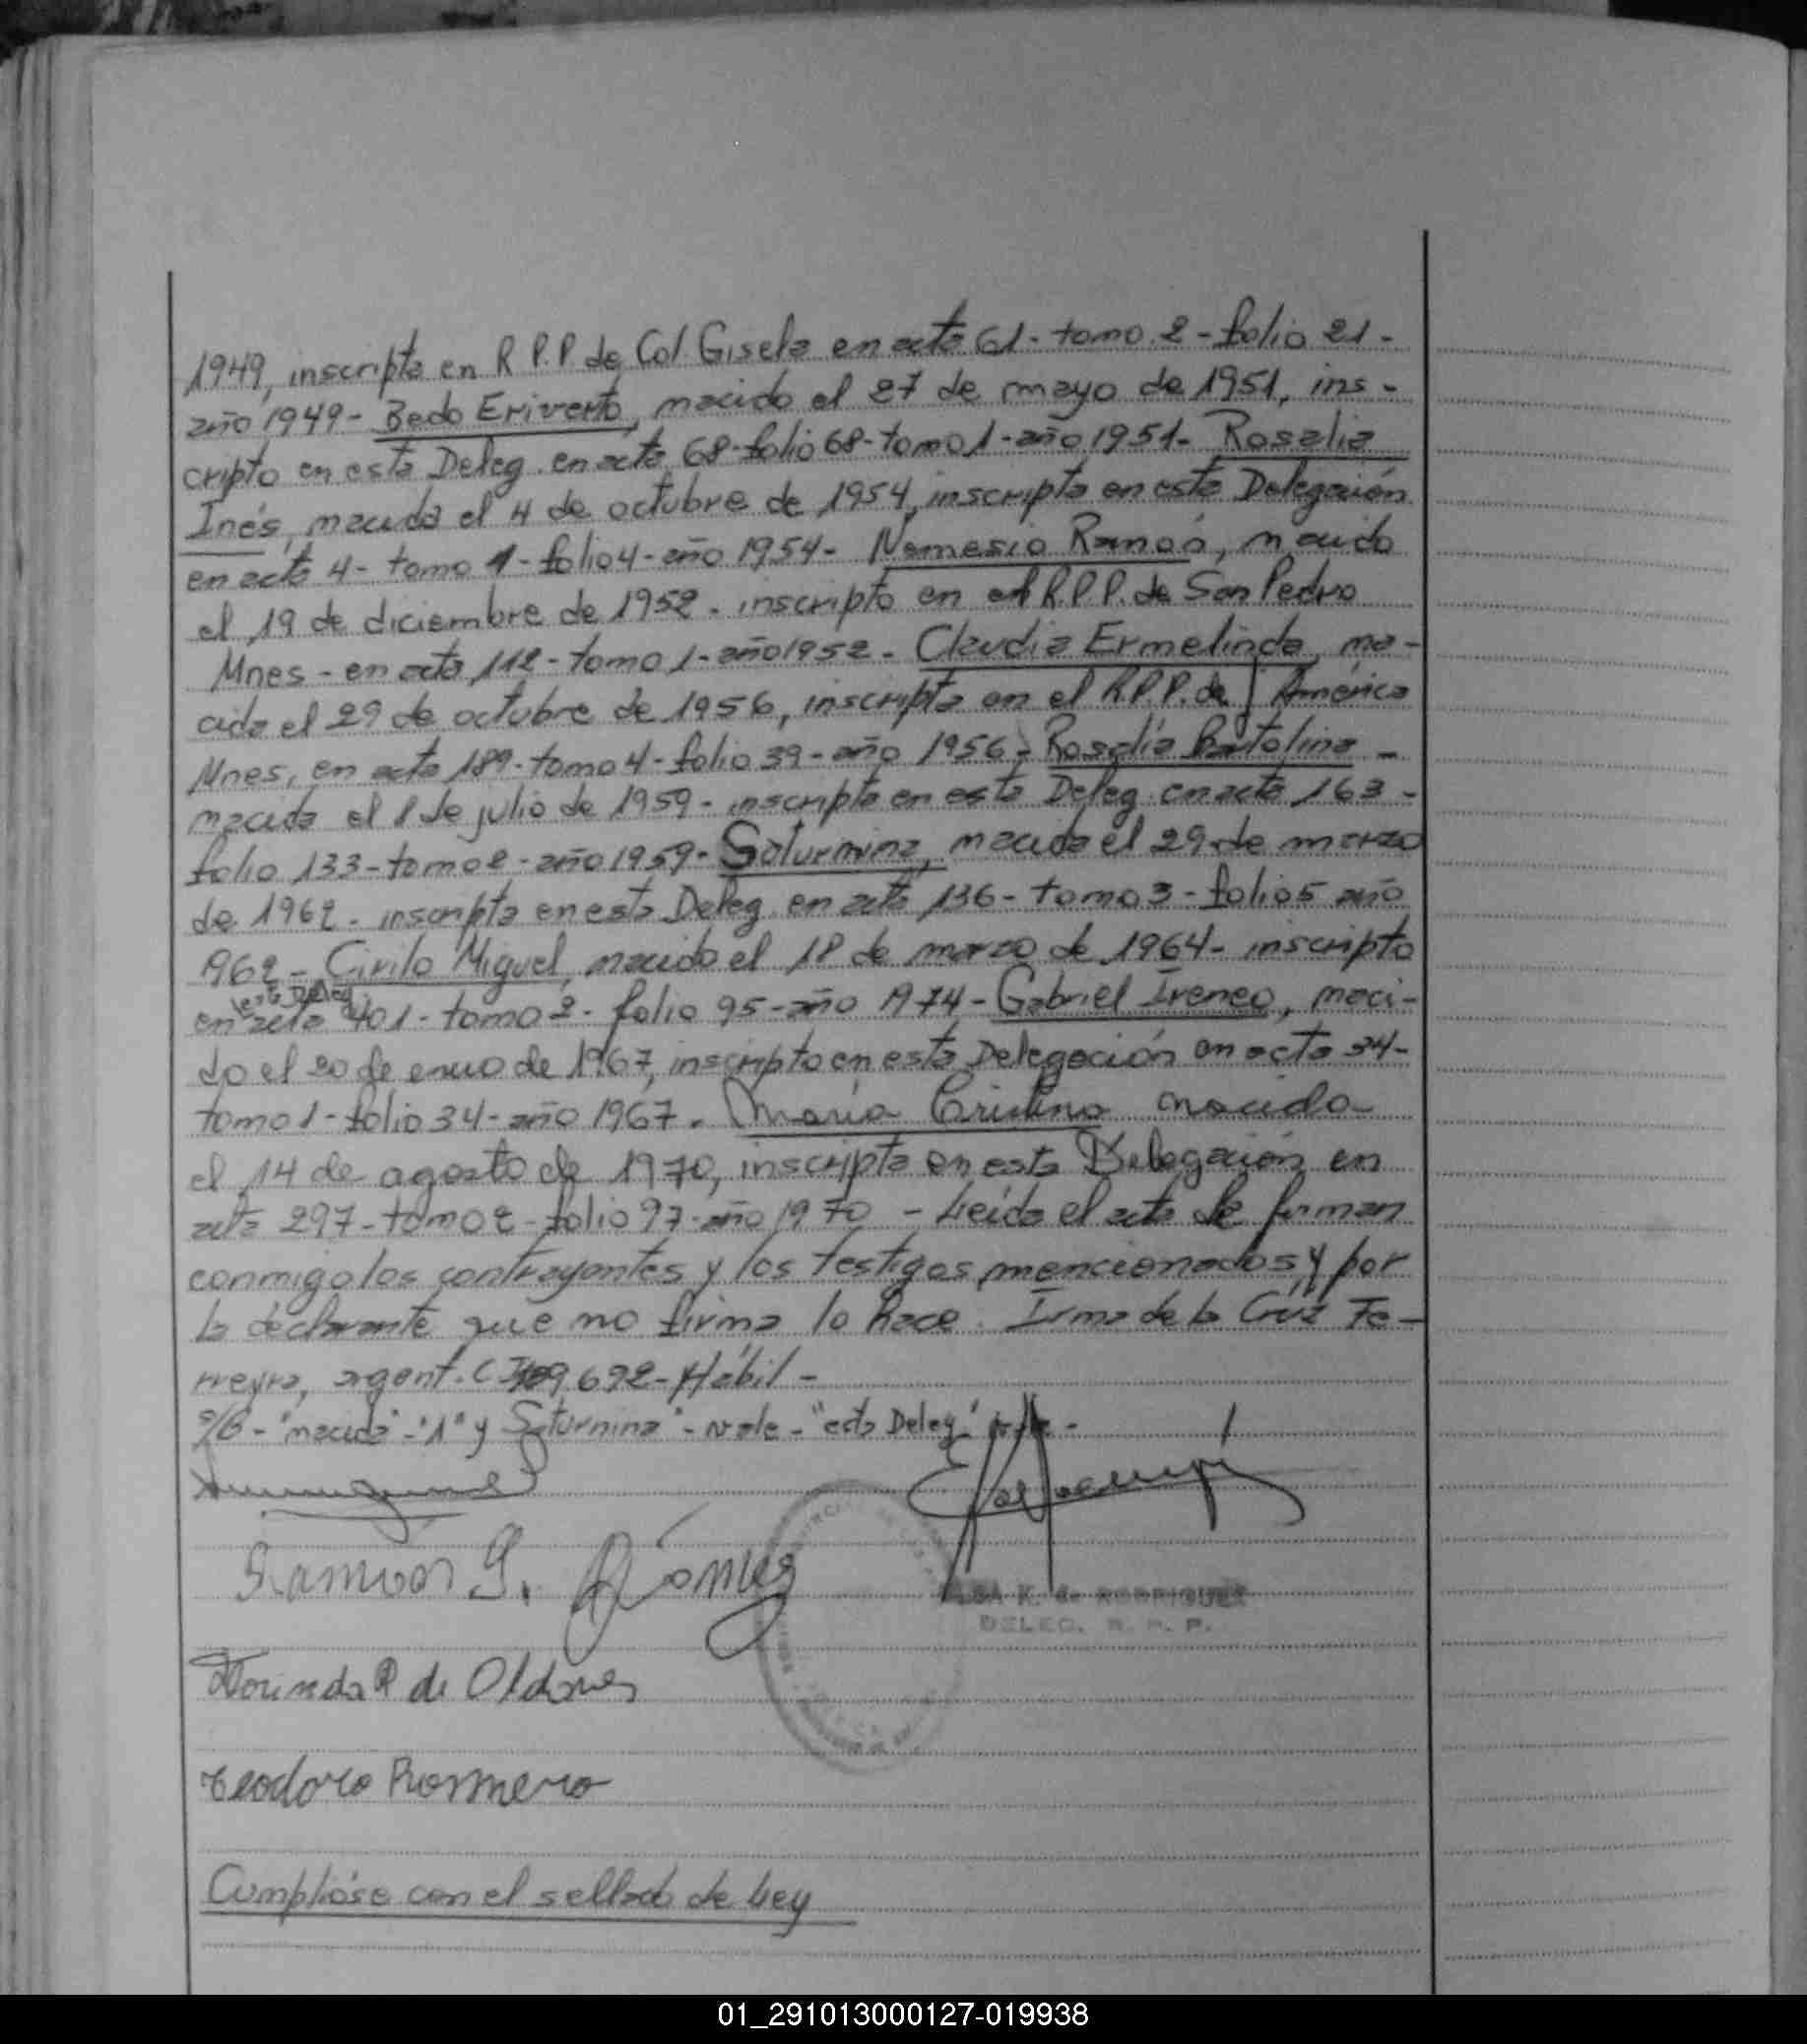 1949, inscripta en R.P.P. de Col. Gisela en acta 61- tomo 2- folio 21-
año 1949- Bedo Eriverto, nacido el 27 de mayo de 1951, ins-
cripto en esta Deleg. en acta 68- folio 68- tomo 1- año 1951- Rosalia
Inés, nacida el 4 de octubre de 1954, inscripta en esta Delegación
en acta 4- tomo 1- folio 4- año 1954- Nemesio Ramón, nacido
el 19 de diciembre de 1952- inscripto en el R.P.P. de San Pedro
Mnes- en acta 112- tomo 1- año 1952- Claudia Ermelinda, na-
cida el 29 de octubre de 1956, inscripta en el R.P.P. de J América
Mnes, en acta 189- tomo 4- folio 39- año 1956- Rosalía Bartolina -
nacida el 8 de julio de 1959- inscripta en esta Deleg. en acta 163-
folio 133- tomo 2- año 1959- Saturnina, nacida el 29 de marzo
de 1962- inscripta en esta Deleg. en acta 136- tomo 3- folio 5 año
1962- Cirilo Miguel, nacido el 18 de marzo de 1964- inscripto
esta Deleg
en acta 401- tomo 2- folio 95- año 1974- Gabriel Ireneo, naci-
do el 20 de enero de 1967, inscripto en esta Delegación en acta 34-
tomo 1- folio 34- año 1967- María Cristina nacida
el 14 de agosto de 1970, inscripta en esta Delegación en
acta 297- tomo 2- folio 97- año 1970 - Leída el acta la firman
conmigo los contrayentes y los testigos mencionados y por
la declarante que no firma lo hace Irma de la Cruz Fe-
rreyra, argent. C.I. 692- Hábil-
S/B- "nacida"- "1" y Saturnina"- vale- "esta Deleg" vale-
Ramon G. Gomes
Dorinda R de Oldones
Teodoro Rommero
K. RODRIGUEZ
DELEG. R. P. P.
Cumplióse con el sellado de Ley
01_291013000127-019938